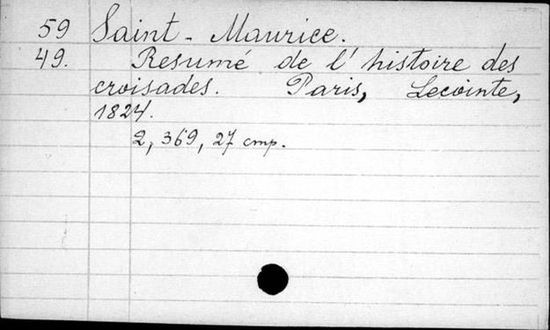 59 Saint-Maurice.
49. Resumé de l'histoire des
croisades. Paris, Lecointe,
1824.
2, 369, 27 cmp.